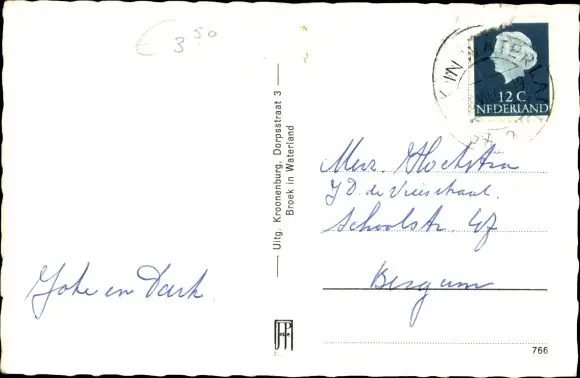 € 3 50
12 C
NEDERLAND
Uitg. Kroonenburg, Dorpsstraat 3
Broek in Waterland
Mevr. Hoekstra
Schoolstr. 47
Bergum
Joke en Dark
JPP
766